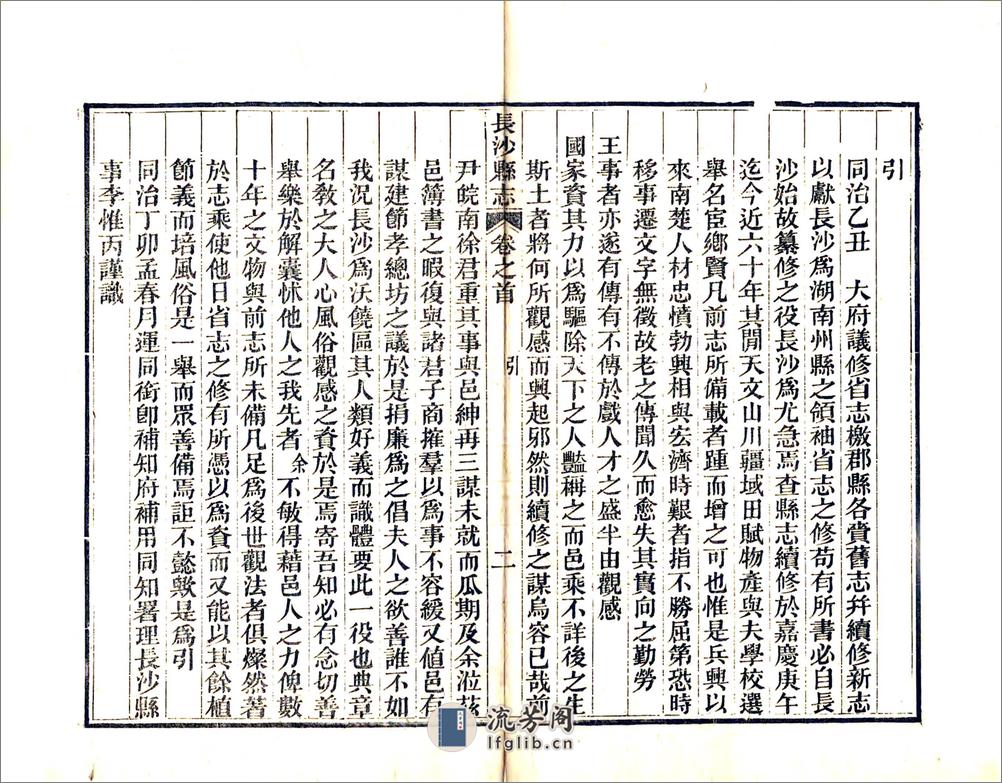 引
同治乙丑 大府議修省志檄郡縣各賫舊志幷續修新志
以獻長沙爲湖南州縣之領袖省志之修苟有所書必自長
沙始故纂修之役長沙爲尤急焉查縣志續修於嘉慶庚午
迄今近六十年其閒天文山川疆域田賦物產與夫學校選
舉名宦鄉賢凡前志所備載者踵而增之可也惟是兵興以
來南楚人材忠憤勃興相與宏濟時艱者指不勝屈第恐時
移事遷文字無徵故老之傳聞久而愈失其實向之勤勞
王事者亦遂有傳有不傳於戲人才之盛半由觀感
國家資其力以爲驅除天下之人豔稱之而邑乘不詳後之生
斯土者將何所觀感而興起邪然則續修之謀烏容已哉前
長沙縣志 卷之首 引 二
尹皖南徐君重其事與邑紳再三謀未就而瓜期及余涖茲
邑簿書之暇復與諸君子商搉羣以爲事不容緩又値邑有
謀建節孝總坊之議於是捐廉爲之倡夫人之欲善誰不如
我況長沙爲沃饒區其人類好義而識體要此一役也典章
名敎之大人心風俗觀感之資於是焉寄吾知必有念切善
舉樂於解囊怵他人之我先者余不敏得藉邑人之力俾數
十年之文物與前志所未備凡足爲後世觀法者俱燦然著
於志乘使他日省志之修有所憑以爲資而又能以其餘植
節義而培風俗是一舉而眾善備焉詎不懿歟是爲引
同治丁卯孟春月運同銜卽補知府補用同知署理長沙縣
事李惟丙謹識
流芳阁
lfglib.cn